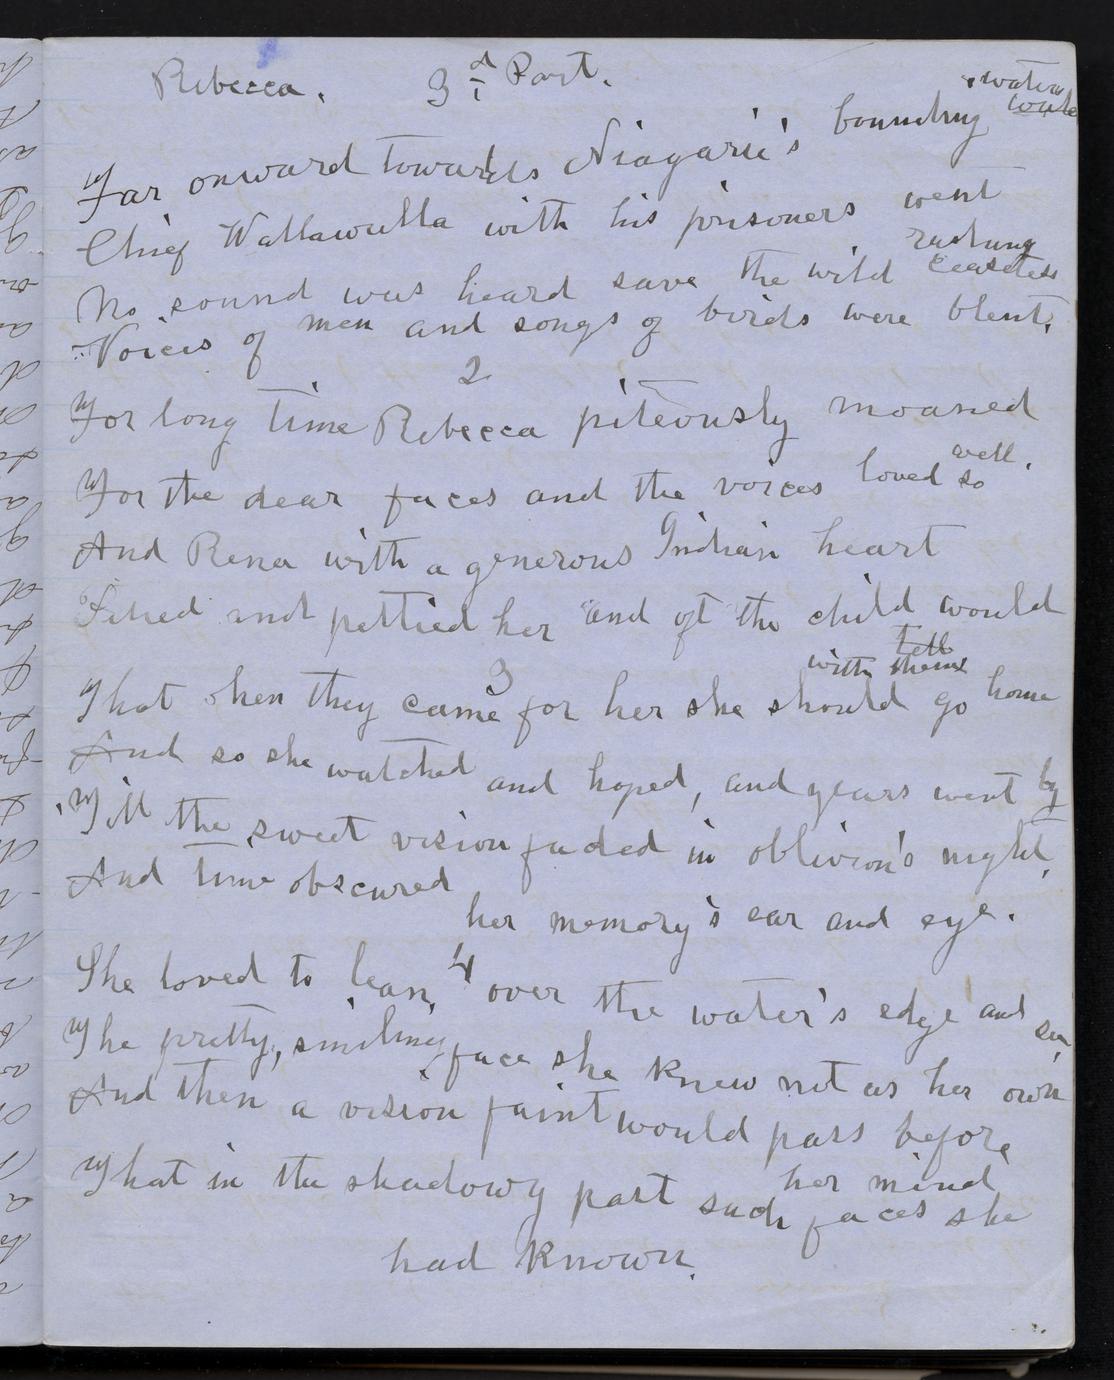 Rebecca. 3d Part.
Far onward towards Niagarie's bounding waters
Chief Wallawulla with his prisoners went
No sound was heard save the wild rushing ceaseless
Voices of men and songs of birds were blent.
2
For long time Rebecca piteously moaned
For the dear faces and the voices loved so well.
And Rena with a generous Indian heart
Pitied and pettied her and oft the child would tell
3
That when they came for her she should go home with them
And so she watched and hoped, and years went by
Till the sweet vision faded in oblivion's night,
And time obscured her memory's ear and eye.
4
She loved to lean, over the water's edge and see,
The pretty, smiling face she knew not as her own
And then a vision faint would pass before her mind
That in the shadowy past such faces she
had known.